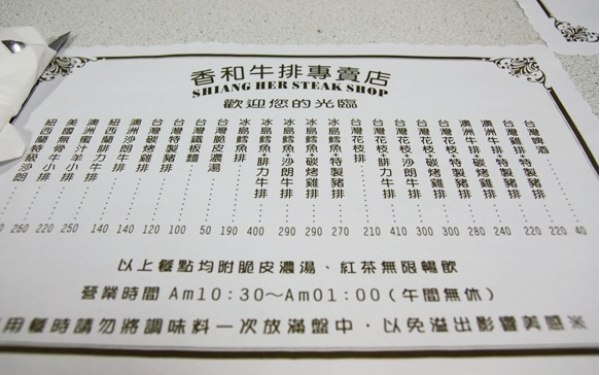 香和牛排專賣店
SHIANG HER STEAK SHOP
歡迎您的光臨
台灣啤酒
台灣雞排+特製豬排
澳洲牛排+特製豬排
澳洲牛排+碳烤雞排
台灣花枝+特製豬排
台灣花枝+碳烤雞排
台灣花枝+沙朗牛排
台灣花枝+腓力牛排
台灣花枝排
冰島鱈魚+特製豬排
冰島鱈魚+碳烤雞排
冰島鱈魚+沙朗牛排
冰島鱈魚+腓力牛排
冰島鱈魚排
台灣脆皮濃湯
台灣鐵板麵
台灣特製豬排
台灣碳烤雞排
紐西蘭沙朗牛排
紐西蘭腓力牛排
澳洲蜜汁羊小排
美國無骨牛小排
紐西蘭特級沙朗
260 220 250 140 140 120 100 50 190 400 290 290 270 210 410 300 300 280 240 220 220 40
以上餐點均附脆皮濃湯、紅茶無限暢飲
營業時間 Am10:30~Am01:00(午間無休)
用餐時請勿將調味料一次放滿盤中,以免溢出影響美感※